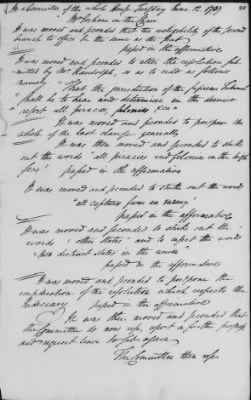 In a Committee of the whole House Tuesday June 12. 1787.
Mr Gorham in the Chair
It was moved and seconded that the ineligibility of the second
branch to office be the same as the first.
passed in the affirmative
It was moved and seconded to alter the resolution sub-
mitted by Mr Randolph, so as to read as follows
namely.
"That the jurisdiction of the supreme Tribunal
shall be to hear and determine in the dernier
resort all piracies, felonies &ca"
It was moved and seconded to postpone the
whole of the last clause generally
It was then moved and seconded to strike
out the words "all piracies and felonies on the high
seas" passed in the affirmative
It was moved and seconded to strike out the words
"all captures from an enemy"
passed in the affirmative
It was moved and seconded to strike out the
words "other States" and to insert the words
two distinct States in the union
passed in the affirmative
It was moved and seconded to postpone the
consideration of the resolution which respects the
Judiciary passed in the affirmative
It was then moved and seconded that
the Committee do now rise, report a further progress
and request leave to sit again
The Committee then rose